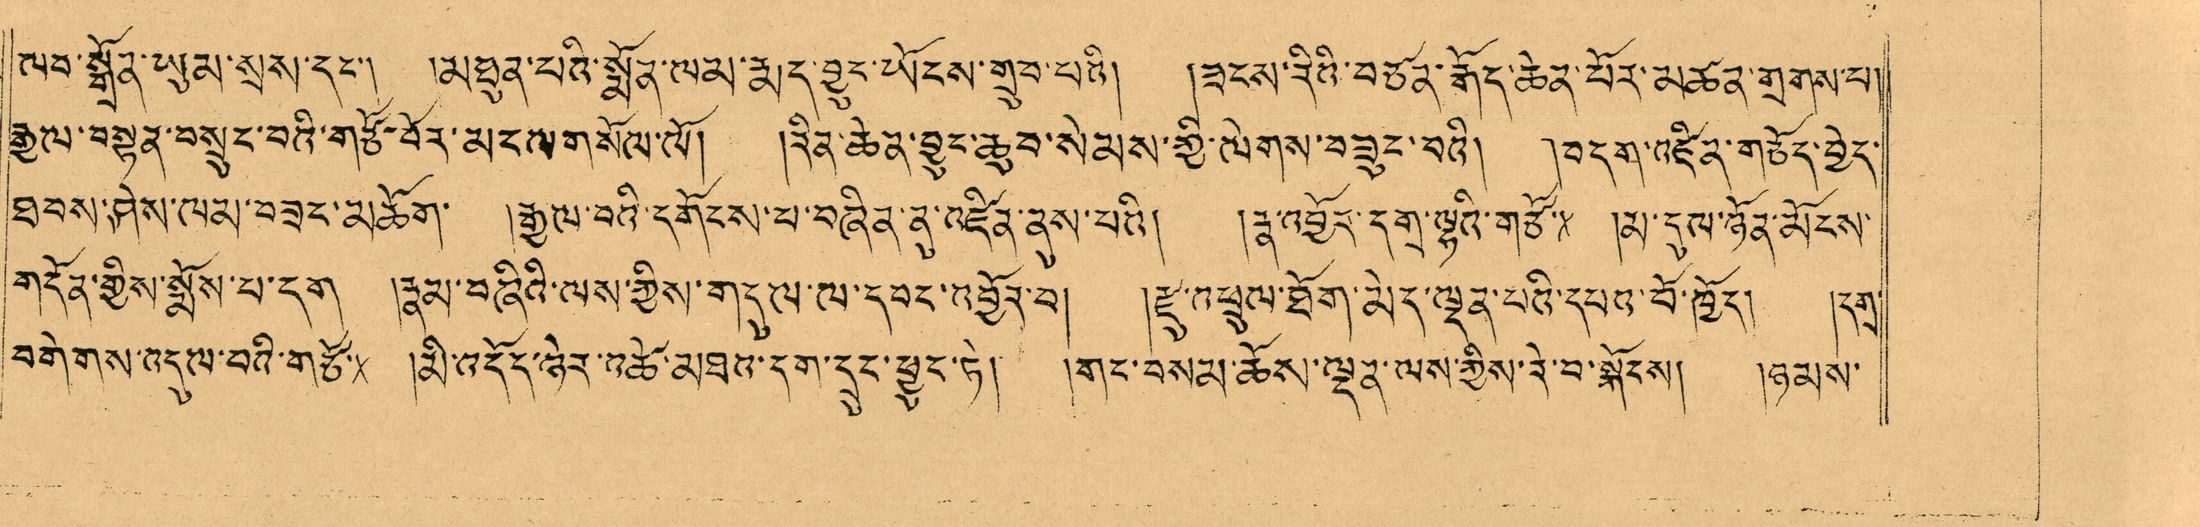 ལབ་སྒྲོན་ཡུམ་སྲས་དང་། །མཐུན་པའི་སྨོན་ལམ་རྨད་བྱུང་ཡོངས་གྲུབ་པའི། །ཟངས་རིའི་བཙན་རྒོད་ཆེན་པོར་མཚན་གྲགས་པ།
རྒྱལ་བསྟན་བསྲུང་བའི་གཙོ་བོར་མངལགསོལ་ལོ། །རིན་ཆེན་བྱང་ཆུབ་སེམས་ཀྱི་ལེགས་བཟུང་བའི། །བདག་འཛིན་གཅོད་བྱེད་
ཐབས་ཤེས་ལམ་བཟང་མཆོག་ །རྒྱལ་བའི་དགོངས་པ་བཞིན་དུ་འཛིན་ནུས་པའི། །རྣ་འབྱོར་དགྲ་ལྷའི་གཙོ་༴ །མ་དུལ་ཉོན་མོངས་
གདོན་གྱིས་སྨྱོས་པ་དག །རྣམ་བཞིའི་ལས་ཀྱིས་གདུལ་ལ་དབང་འབྱོར་བ། །རྫུ་འཕྲུལ་ཐོག་མེད་ལྡན་པའི་དཔའ་བོ་ཁྱོད། །དགྲ་
བགེགས་འདུལ་བའི་གཙོ་༴ །མི་འདོད་ཉེར་འཚེ་མཐའ་དག་དྲུང་ཕྱུང་ཏེ། །གང་བསམ་ཆོས་ལྡན་ལས་ཀྱིས་རེ་བ་སྐོངས། །ཉམས་